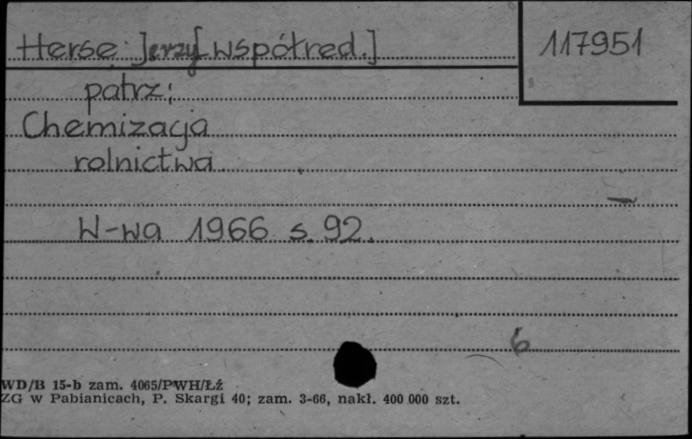 Herse Jerzy [współred.]
117951
patrz:
Chemizacja
rolnictwa
W-wa 1966 s. 92.
6
WD/B 15-b zam. 4065/PWH/Łź
ZG w Pabianicach, P. Skargi 40; zam. 3-66, nakł. 400 000 szt.